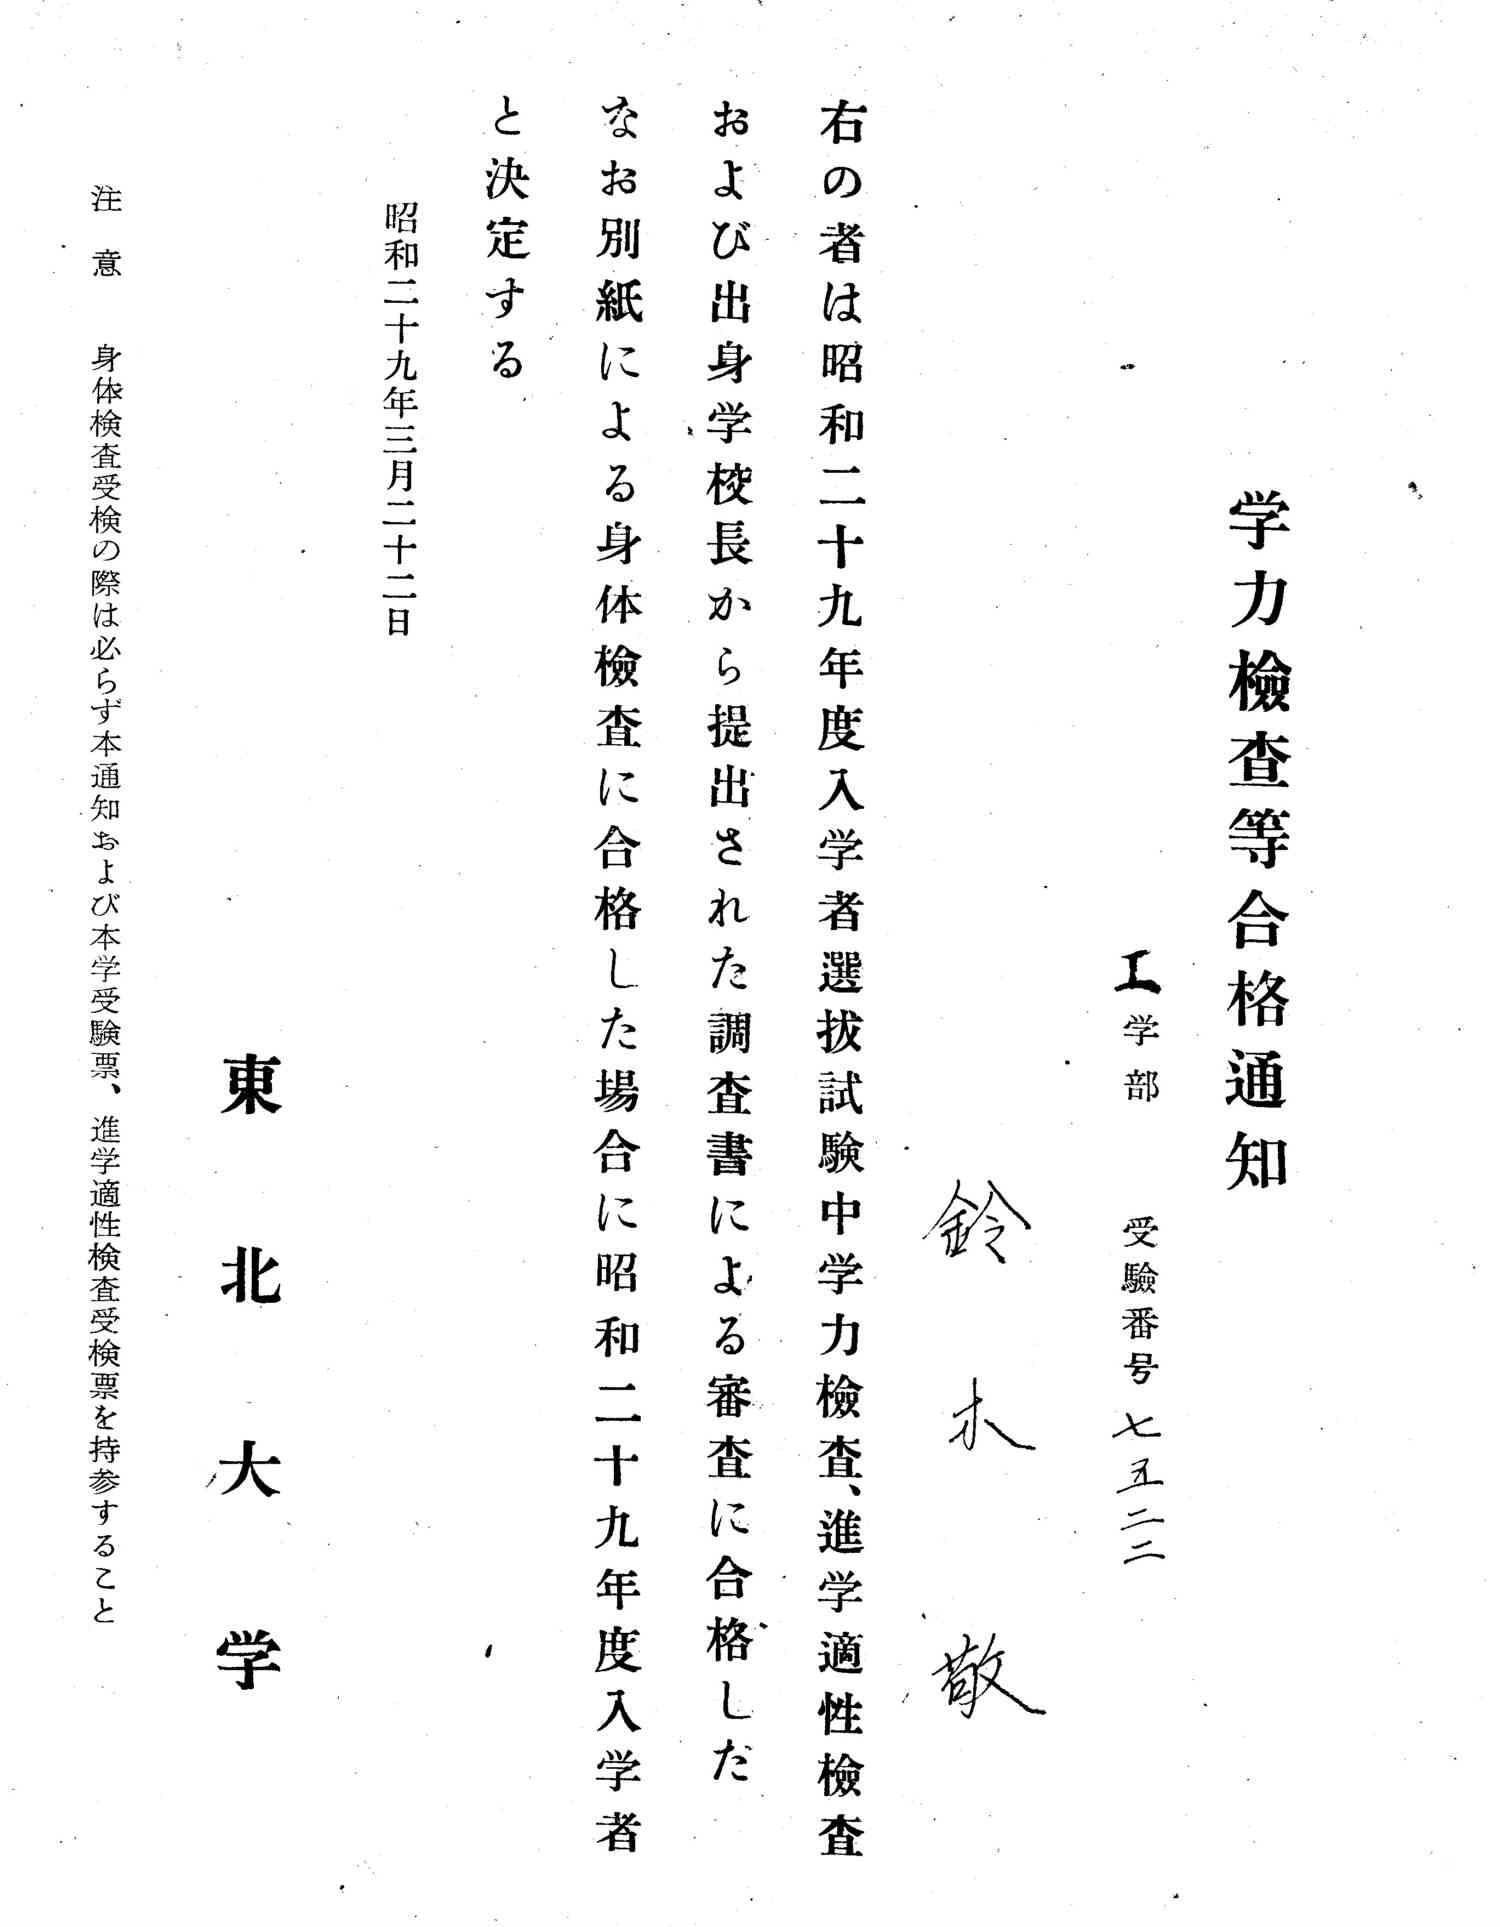 学力檢査等合格通知
工学部　受驗番号七五二二
鈴木敬
右の者は昭和二十九年度入学者選拔試験中学力檢査、進学適性檢査
および出身学校長から提出された調査書による審査に合格しだ
なお別紙による身体檢査に合格した場合に昭和二十九年度入学者
と決定する
昭和二十九年三月二十二日
東北大学
注意　身体検査受検の際は必らず本通知および本学受験票、進学適性検査受検票を持参すること